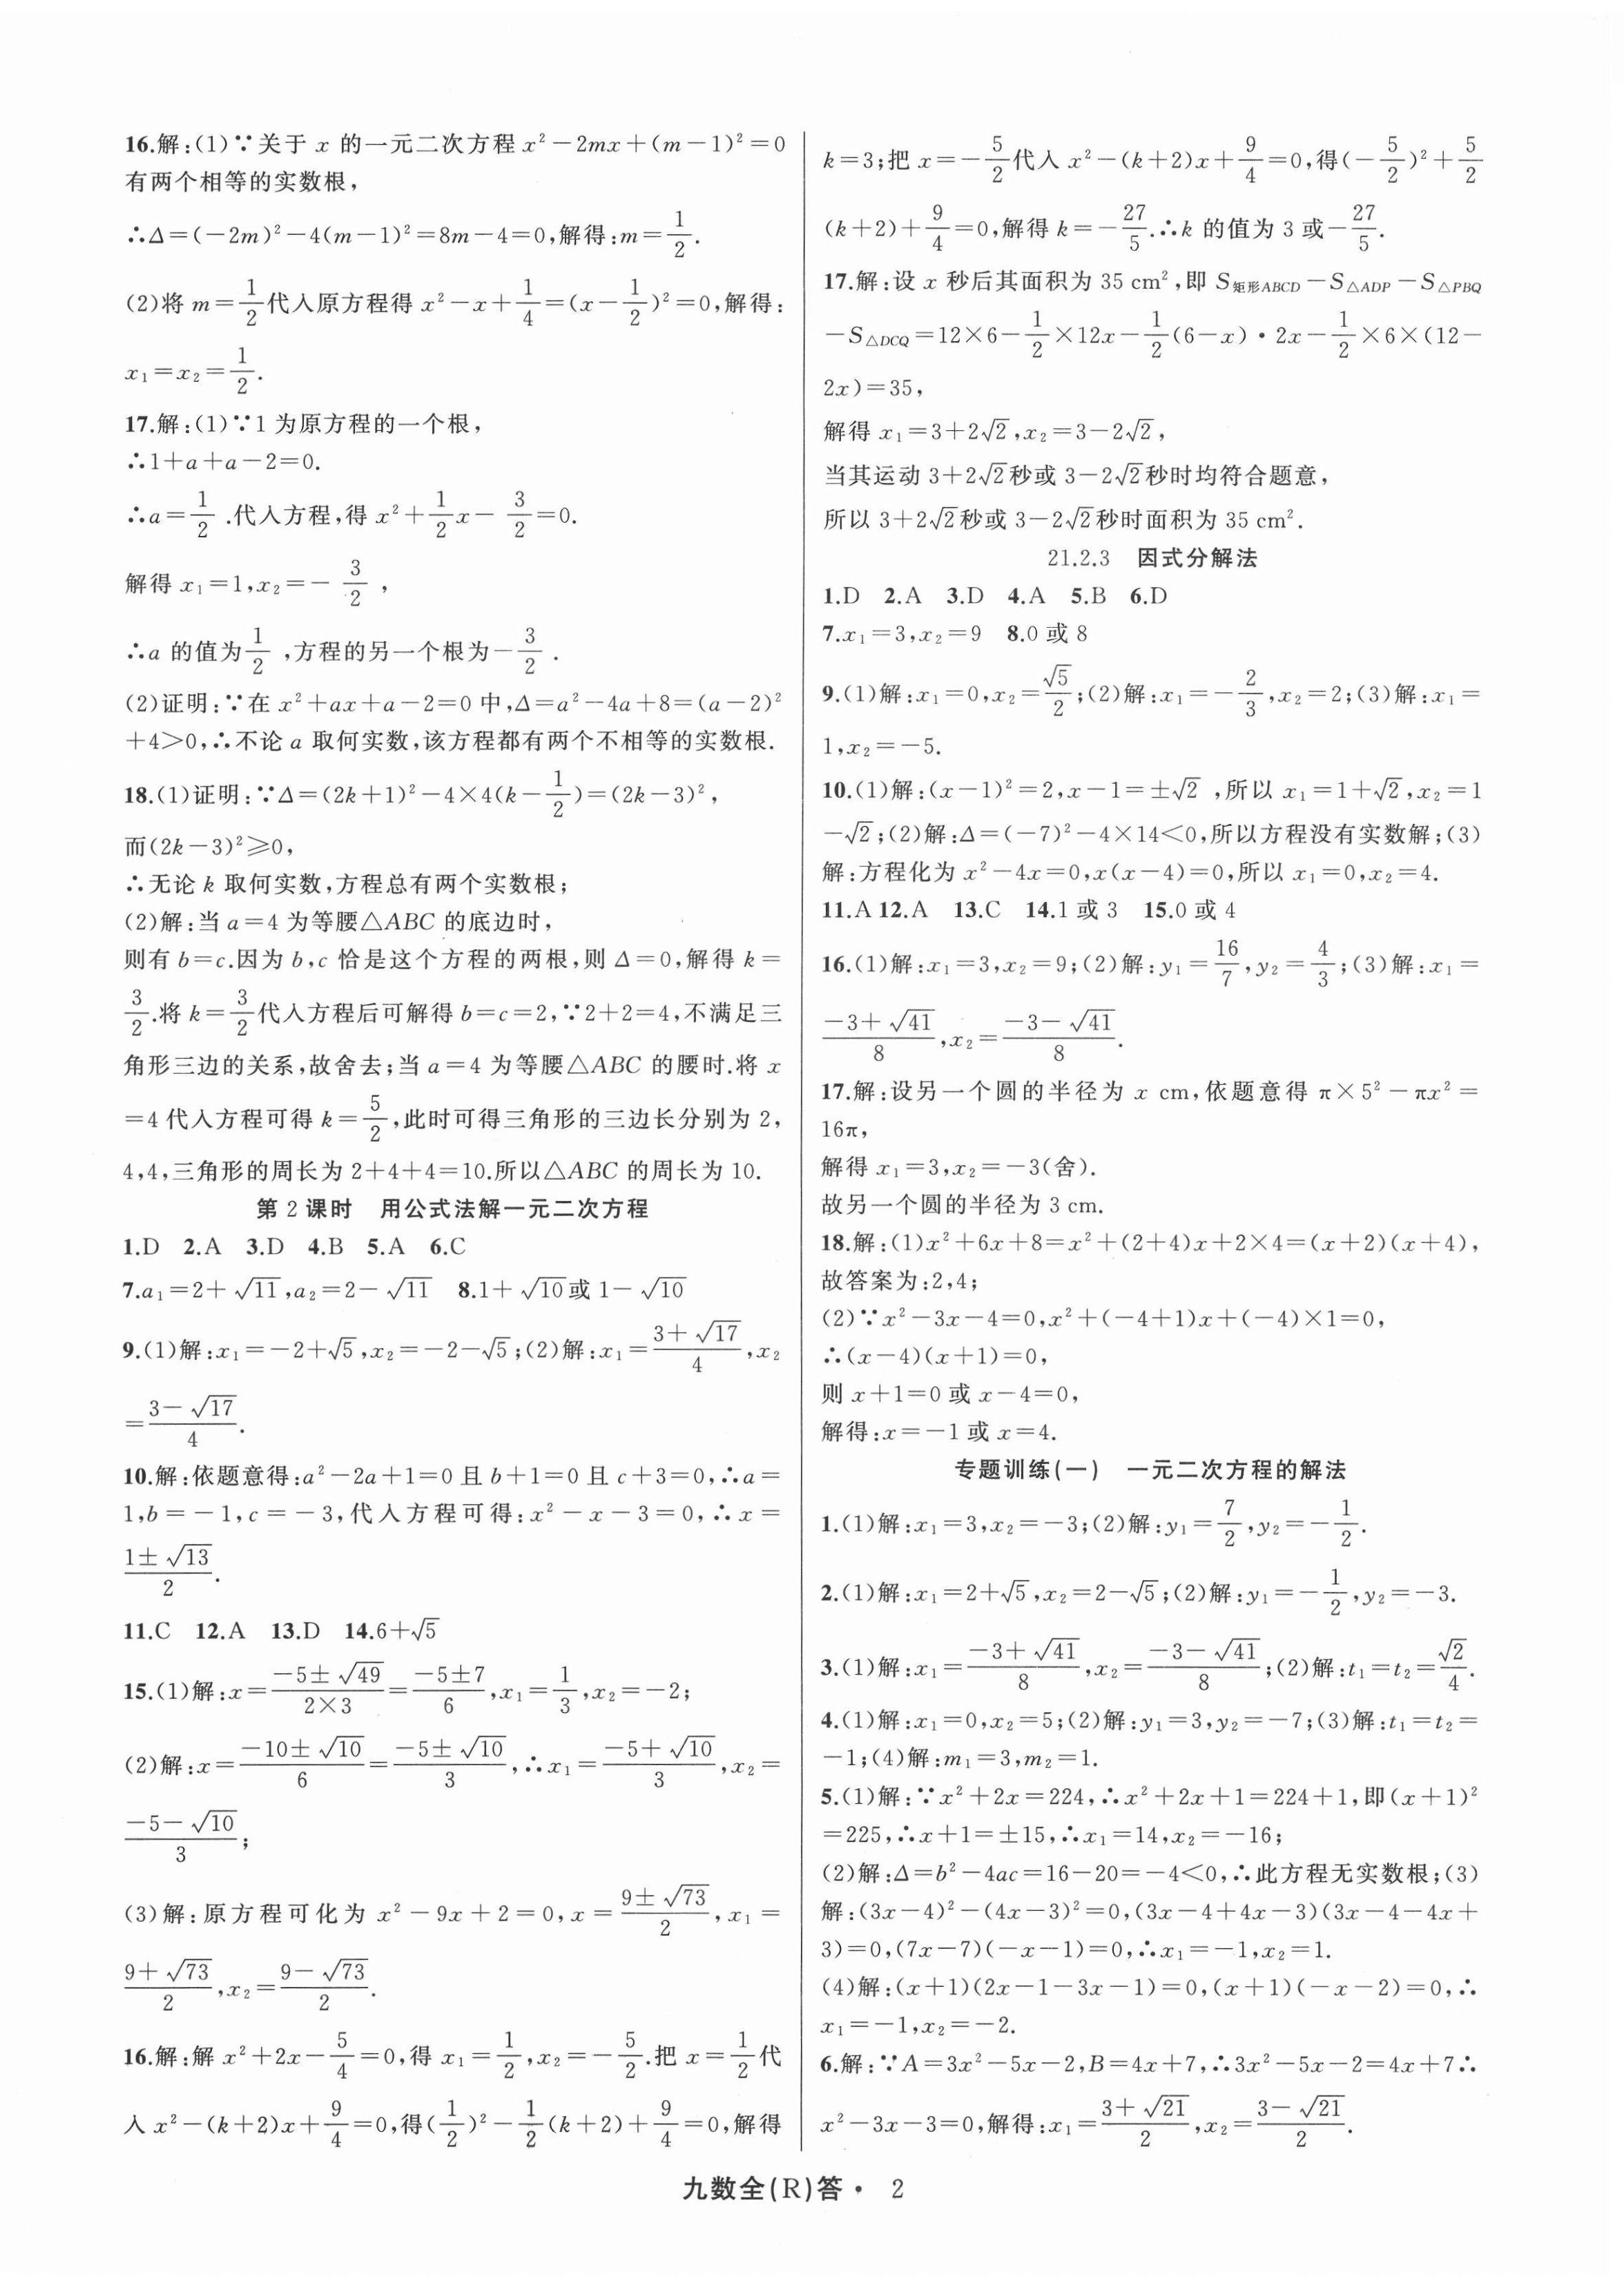 16.解:(1)∵关于 x 的一元二次方程 x²-2mx+(m-1)²=0
有两个相等的实数根,
∴Δ=(-2m)²-4(m-1)²=8m-4=0,解得:m=1/2.
(2)将 m=1/2代入原方程得 x²-x+1/4=(x-1/2)²=0,解得:
x₁=x₂=1/2.
17.解:(1)∵1 为原方程的一个根,
∴1+a+a-2=0.
∴a=1/2.代入方程,得 x²+1/2x-3/2=0.
解得 x₁=1,x₂=-3/2,
∴a 的值为1/2,方程的另一个根为-3/2.
(2)证明:∵在 x²+ax+a-2=0 中,Δ=a²-4a+8=(a-2)²
+4>0,∴不论 a 取何实数,该方程都有两个不相等的实数根.
18.(1)证明:∵Δ=(2k+1)²-4×4(k-1/2)=(2k-3)²,
而(2k-3)²≥0,
∴无论 k 取何实数,方程总有两个实数根;
(2)解:当 a=4 为等腰△ABC 的底边时,
则有 b=c.因为 b,c 恰是这个方程的两根,则 Δ=0,解得 k=
3/2.将 k=3/2代入方程后可解得 b=c=2,∵2+2=4,不满足三
角形三边的关系,故舍去;当 a=4 为等腰△ABC 的腰时.将 x
=4 代入方程可得 k=5/2,此时可得三角形的三边长分别为 2,
4,4,三角形的周长为 2+4+4=10.所以△ABC 的周长为 10.
第 2 课时 用公式法解一元二次方程
1.D 2.A 3.D 4.B 5.A 6.C
7.a₁=2+√11,a₂=2-√11 8.1+√10或 1-√10
9.(1)解:x₁=-2+√5,x₂=-2-√5;(2)解:x₁=(3+√17)/4,x₂
=(3-√17)/4.
10.解:依题意得:a²-2a+1=0 且 b+1=0 且 c+3=0,∴a=
1,b=-1,c=-3,代入方程可得:x²-x-3=0,∴x=
(1±√13)/2.
11.C 12.A 13.D 14.6+√5
15.(1)解:x=(-5±√49)/(2×3)=(-5±7)/6,x₁=1/3,x₂=-2;
(2)解:x=(-10±√10)/6=(-5±√10)/3,∴x₁=(-5+√10)/3,x₂=
(-5-√10)/3;
(3)解:原方程可化为 x²-9x+2=0,x=(9±√73)/2,x₁=
(9+√73)/2,x₂=(9-√73)/2.
16.解:解 x²+2x-5/4=0,得 x₁=1/2,x₂=-5/2.把 x=1/2代
入 x²-(k+2)x+9/4=0,得(1/2)²-1/2(k+2)+9/4=0,解得
k=3;把 x=-5/2代入 x²-(k+2)x+9/4=0,得(-5/2)²+5/2
(k+2)+9/4=0,解得 k=-27/5.∴k 的值为 3 或-27/5.
17.解:设 x 秒后其面积为 35 cm²,即 S矩形ABCD-S△ADP-S△PBQ
-S△DCQ=12×6-1/2×12x-1/2(6-x)·2x-1/2×6×(12-
2x)=35,
解得 x₁=3+2√2,x₂=3-2√2,
当其运动 3+2√2秒或 3-2√2秒时均符合题意,
所以 3+2√2秒或 3-2√2秒时面积为 35 cm².
21.2.3 因式分解法
1.D 2.A 3.D 4.A 5.B 6.D
7.x₁=3,x₂=9 8.0 或 8
9.(1)解:x₁=0,x₂=√5/2;(2)解:x₁=-2/3,x₂=2;(3)解:x₁=
1,x₂=-5.
10.(1)解:(x-1)²=2,x-1=±√2,所以 x₁=1+√2,x₂=1
-√2;(2)解:Δ=(-7)²-4×14<0,所以方程没有实数解;(3)
解:方程化为 x²-4x=0,x(x-4)=0,所以 x₁=0,x₂=4.
11.A 12.A 13.C 14.1 或 3 15.0 或 4
16.(1)解:x₁=3,x₂=9;(2)解:y₁=16/7,y₂=4/3;(3)解:x₁=
(-3+√41)/8,x₂=(-3-√41)/8.
17.解:设另一个圆的半径为 x cm,依题意得 π×5²-πx²=
16π,
解得 x₁=3,x₂=-3(舍).
故另一个圆的半径为 3 cm.
18.解:(1)x²+6x+8=x²+(2+4)x+2×4=(x+2)(x+4),
故答案为:2,4;
(2)∵x²-3x-4=0,x²+(-4+1)x+(-4)×1=0,
∴(x-4)(x+1)=0,
则 x+1=0 或 x-4=0,
解得:x=-1 或 x=4.
专题训练(一) 一元二次方程的解法
1.(1)解:x₁=3,x₂=-3;(2)解:y₁=7/2,y₂=-1/2.
2.(1)解:x₁=2+√5,x₂=2-√5;(2)解:y₁=-1/2,y₂=-3.
3.(1)解:x₁=(-3+√41)/8,x₂=(-3-√41)/8;(2)解:t₁=t₂=√2/4.
4.(1)解:x₁=0,x₂=5;(2)解:y₁=3,y₂=-7;(3)解:t₁=t₂=
-1;(4)解:m₁=3,m₂=1.
5.(1)解:∵x²+2x=224,∴x²+2x+1=224+1,即(x+1)²
=225,∴x+1=±15,∴x₁=14,x₂=-16;
(2)解:Δ=b²-4ac=16-20=-4<0,∴此方程无实数根;(3)
解:(3x-4)²-(4x-3)²=0,(3x-4+4x-3)(3x-4-4x+
3)=0,(7x-7)(-x-1)=0,∴x₁=-1,x₂=1.
(4)解:(x+1)(2x-1-3x-1)=0,(x+1)(-x-2)=0,∴
x₁=-1,x₂=-2.
6.解:∵A=3x²-5x-2,B=4x+7,∴3x²-5x-2=4x+7∴
x²-3x-3=0,解得:x₁=(3+√21)/2,x₂=(3-√21)/2.
九数全(R)答· 2